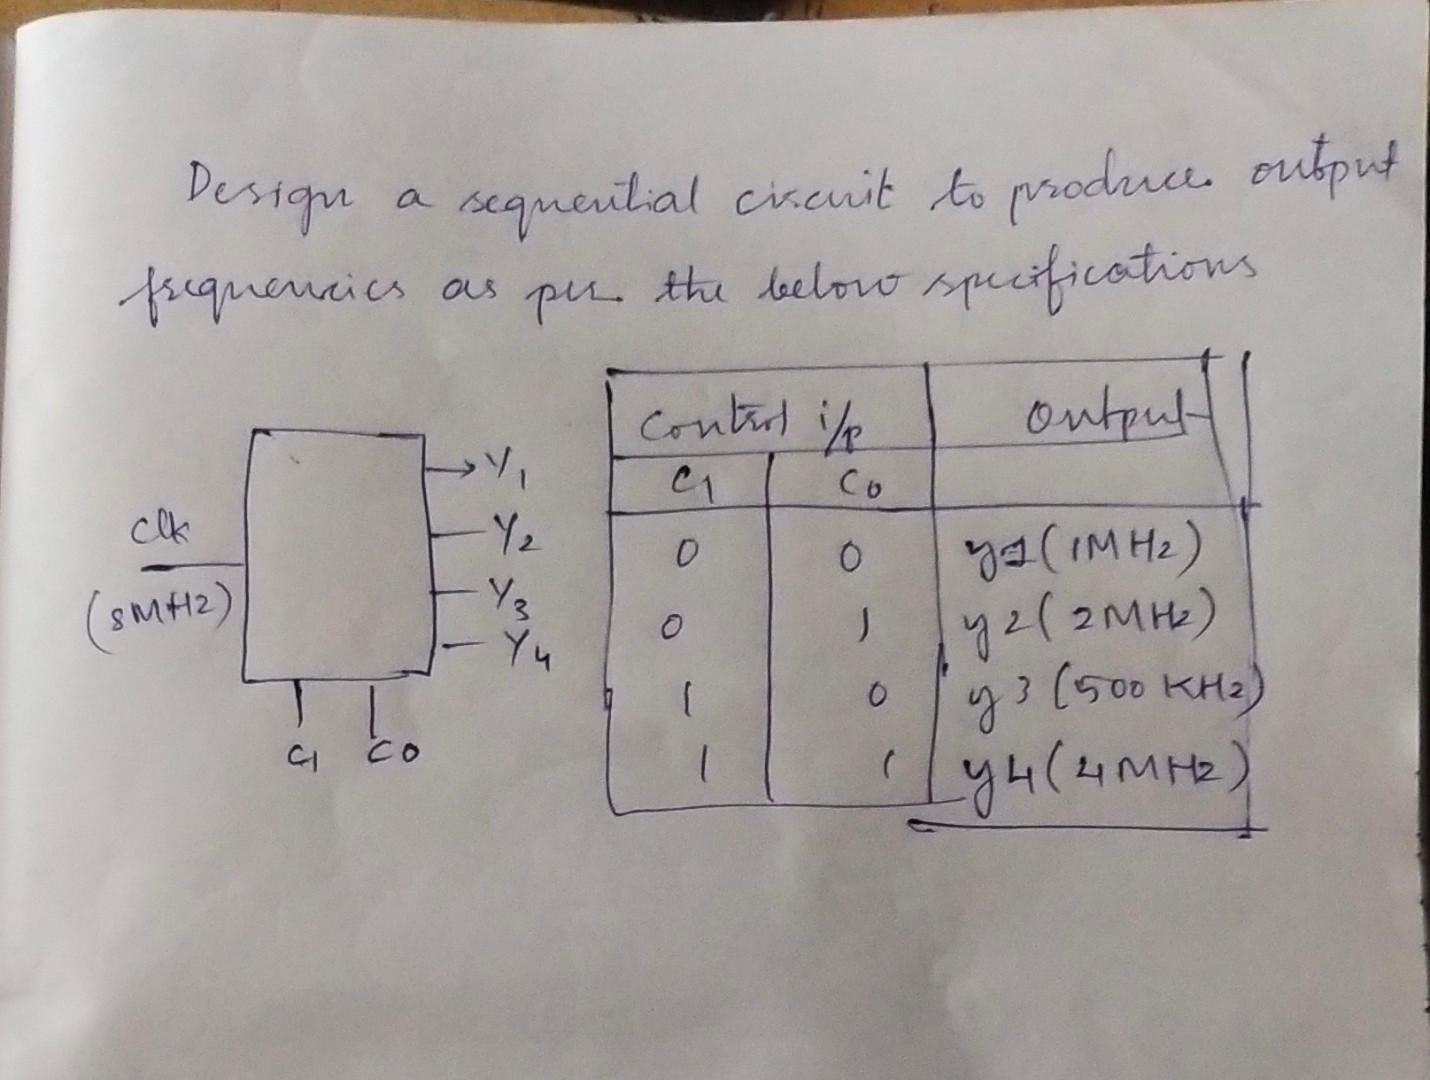 Design a sequential circuit to produce output
frequencies as per the below specifications
Clk
(8MHz)
Y1
Y2
Y3
Y4
C1 C0
Control i/p Output
C1 C0
0 0 y1(1MHz)
0 1 y2(2MHz)
1 0 y3(500 KHz)
1 1 y4(4MHz)